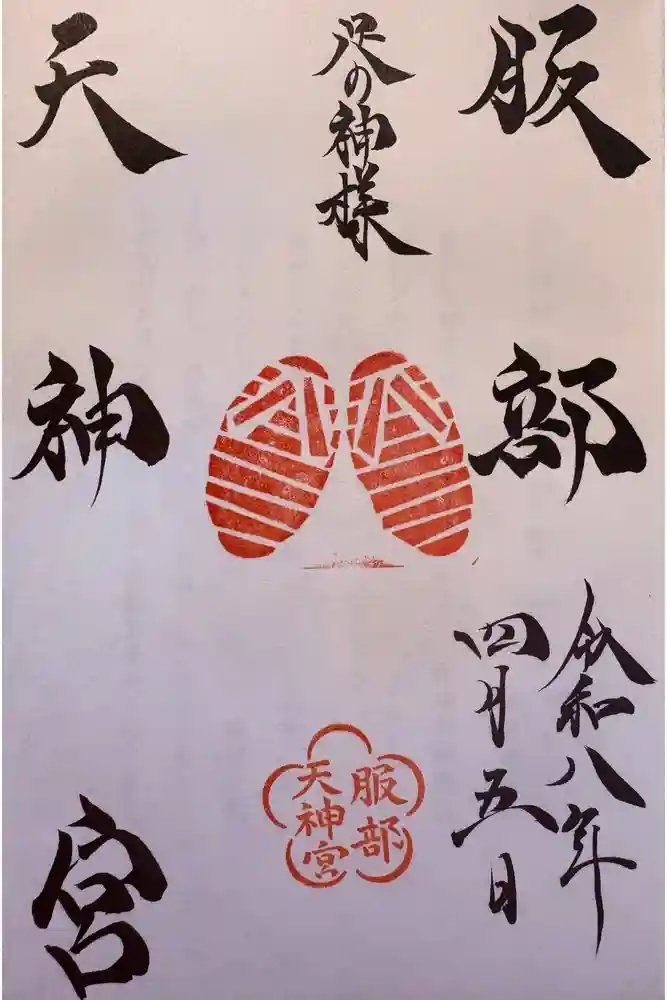 服部
足の神様
天神宮
令和八年
四月五日
服部
天神宮